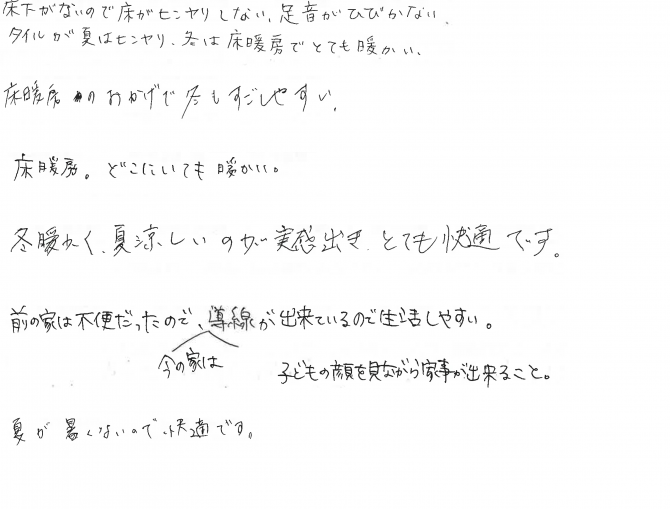 床下がないので床がヒンヤリしない、足音がひびかない
タイルが夏はヒンヤリ、冬は床暖房でとても暖かい、
床暖房のおかげで冬もすごしやすい。
床暖房。どこにいても暖かい。
冬暖かく、夏涼しいのが実感出き、とても快適です。
前の家は不便だったので、導線が出来ているので生活しやすい。
今の家は
子どもの顔を見ながら家事が出来ること。
夏が暑くないので快適です。